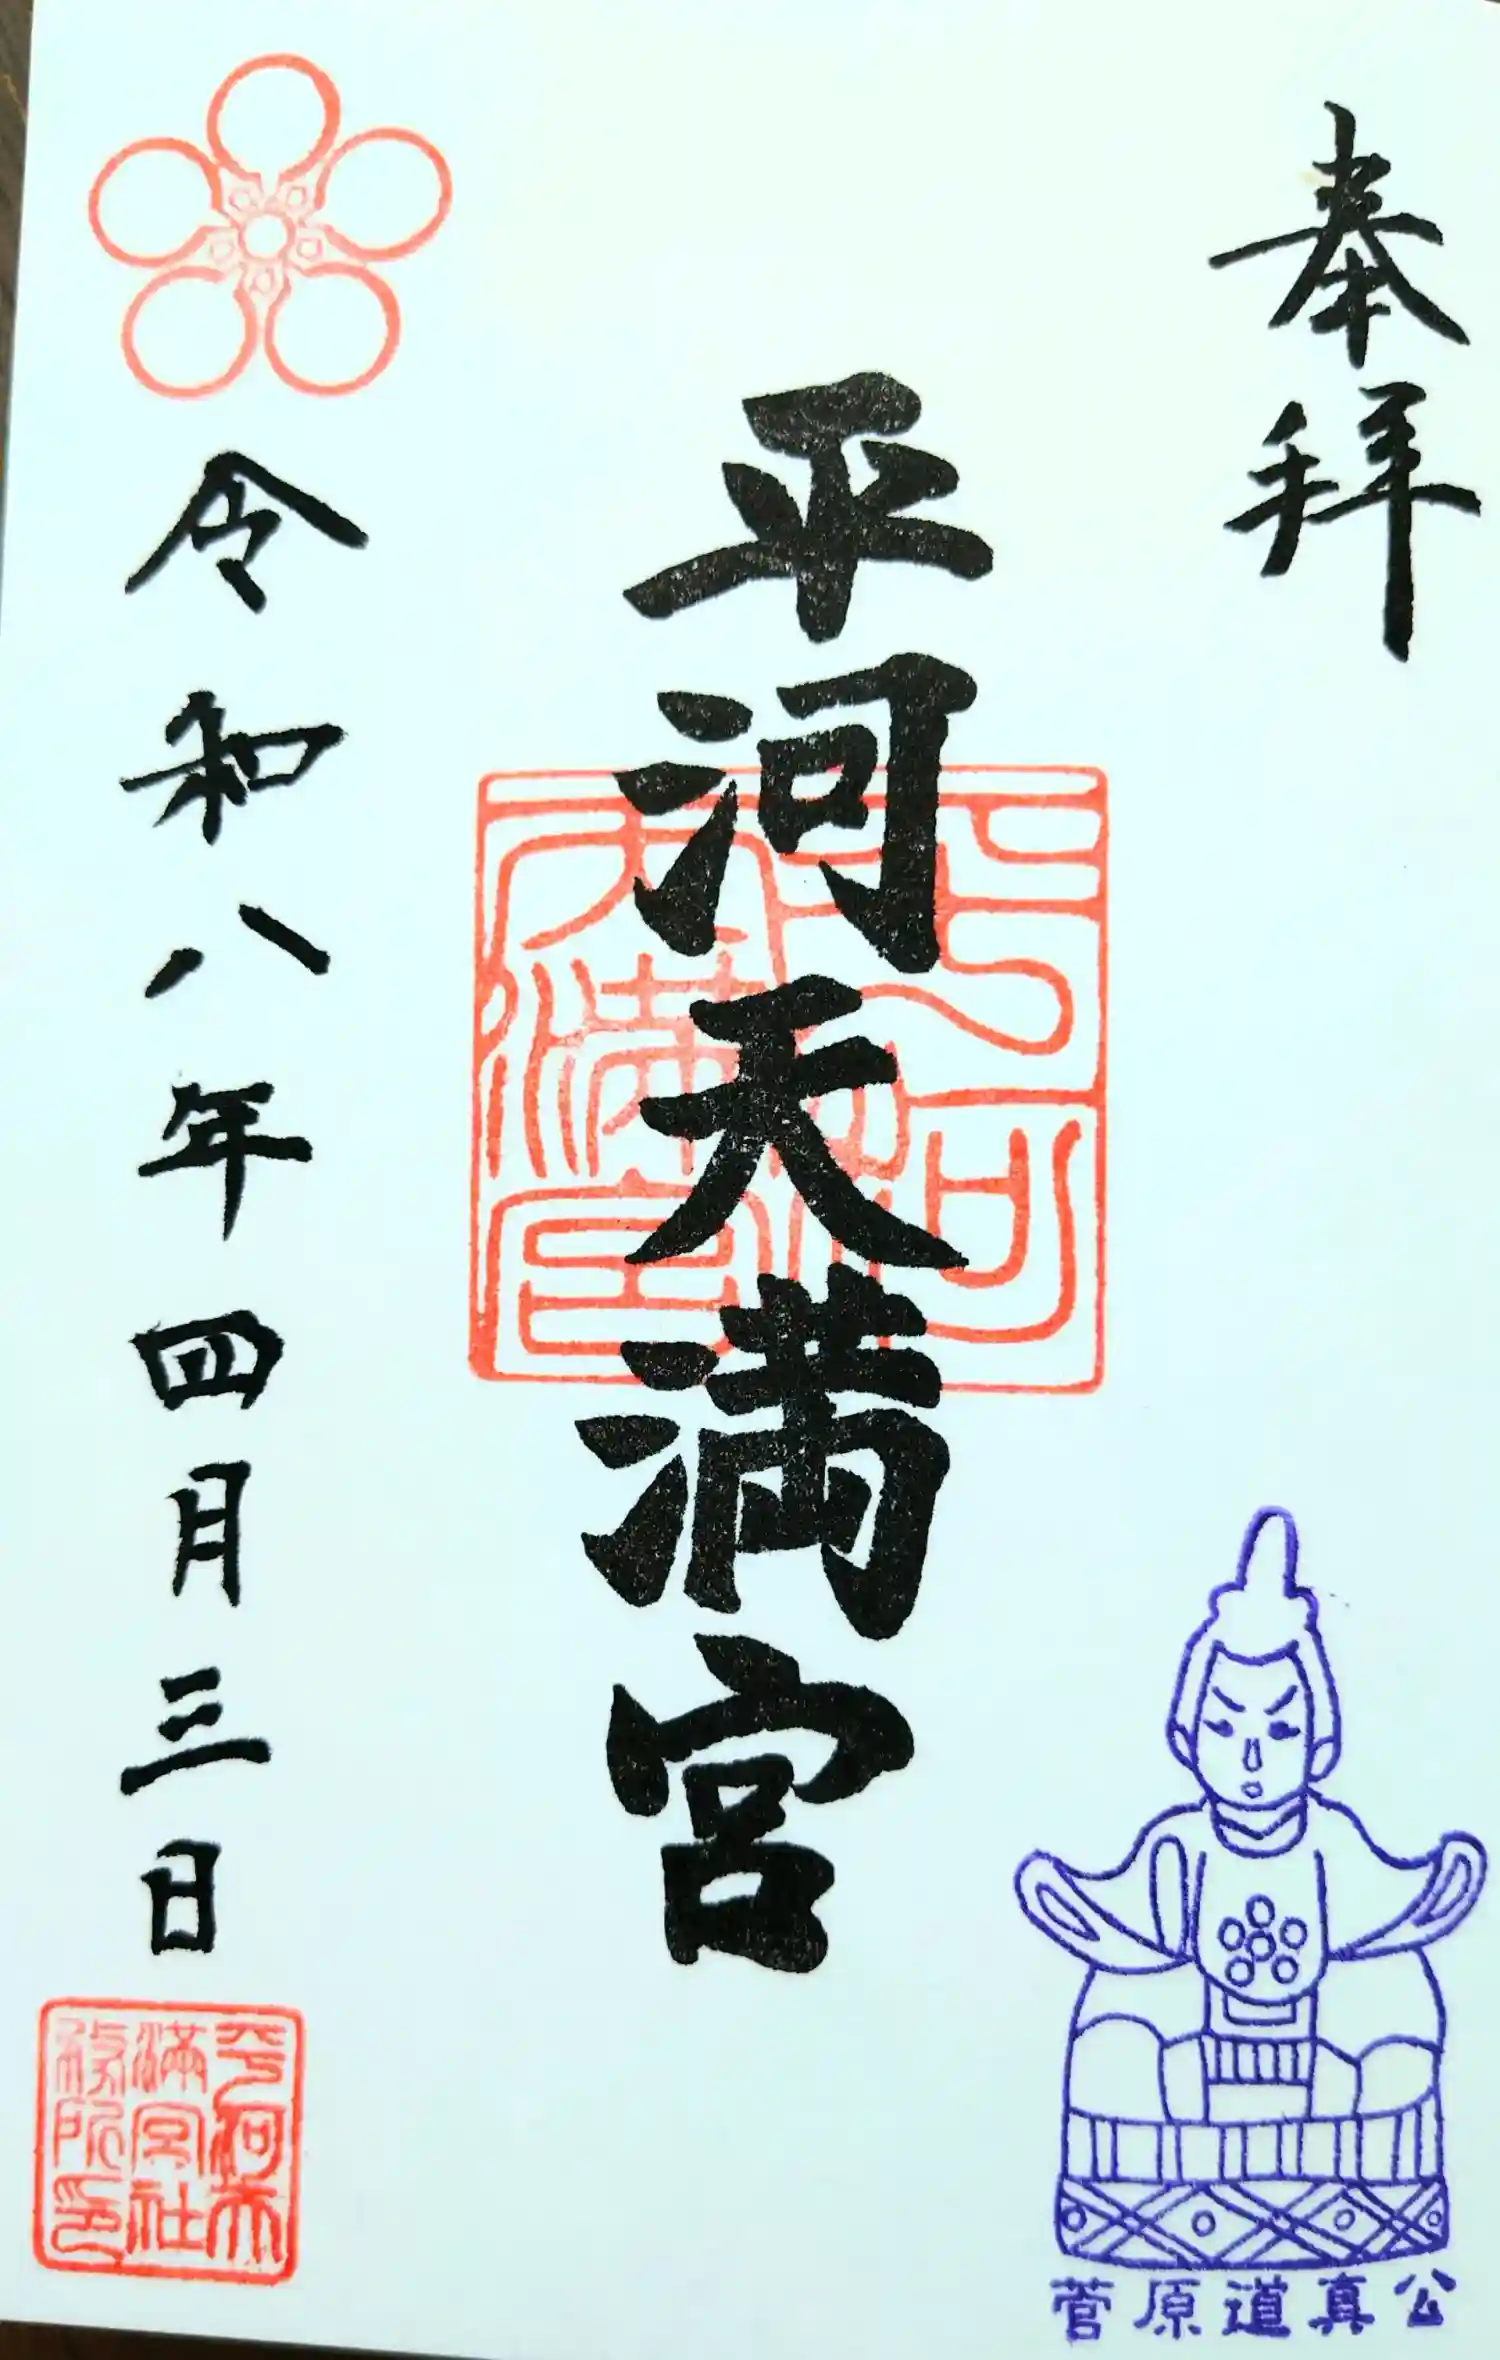 奉拝
平河天満宮
平河天満宮
令和八年四月三日
平河天満宮社務所印
菅原道真公